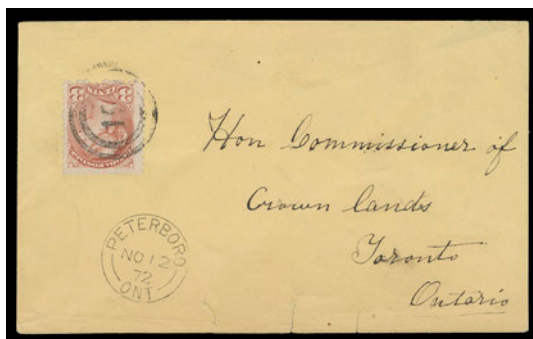 Hon Commissioner of
Crown lands
Toronto
Ontario
PETERBORO
NO 12
72
ONT